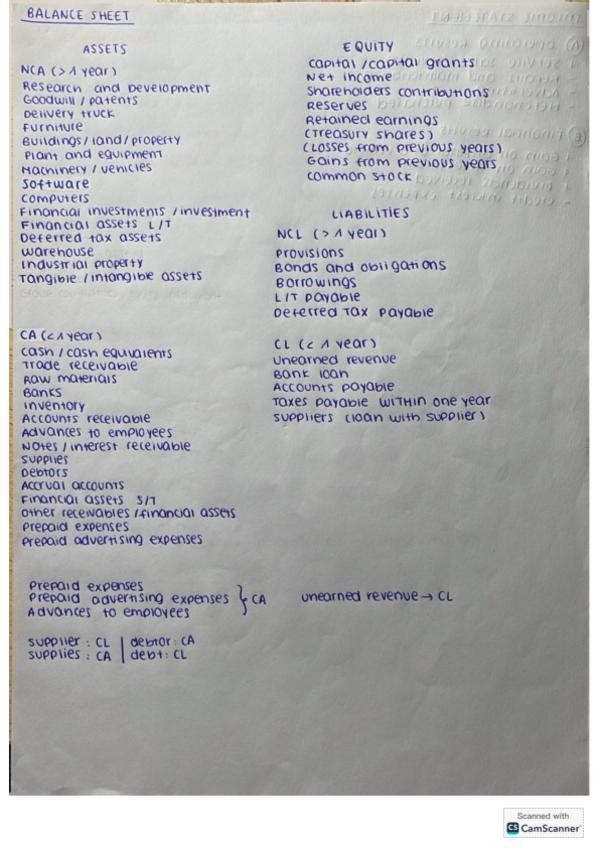 BALANCE SHEET
ASSETS
NCA (> 1 year)
Research and Development
Goodwill / patents
Delivery truck
Furniture
Buildings / land / property
Plant and equipment
Machinery / vehicles
Software
Computers
Financial investments / investment
Financial assets L/T
Deferred tax assets
Warehouse
Industrial property
Tangible / intangible assets
CA (< 1 year)
Cash / cash equivalents
Trade receivable
Raw materials
Banks
Inventory
Accounts receivable
Advances to employees
Notes / interest receivable
Supplies
Debtors
Accrual accounts
Financial assets S/T
Other receivables / financial assets
Prepaid expenses
Prepaid advertising expenses
EQUITY
Capital / capital grants
Net income
Shareholders contributions
Reserves
Retained earnings
(Treasury shares)
(Losses from previous years)
Gains from previous years
Common stock
LIABILITIES
NCL (> 1 year)
Provisions
Bonds and obligations
Borrowings
L/T payable
Deferred Tax payable
CL (< 1 year)
Unearned revenue
Bank loan
Accounts payable
Taxes payable WITHIN one year
Suppliers (loan with supplier)
Prepaid expenses
Prepaid advertising expenses } CA
Advances to employees
unearned revenue → CL
supplier : CL | debtor : CA
supplies : CA | debt : CL
Scanned with
CS CamScanner